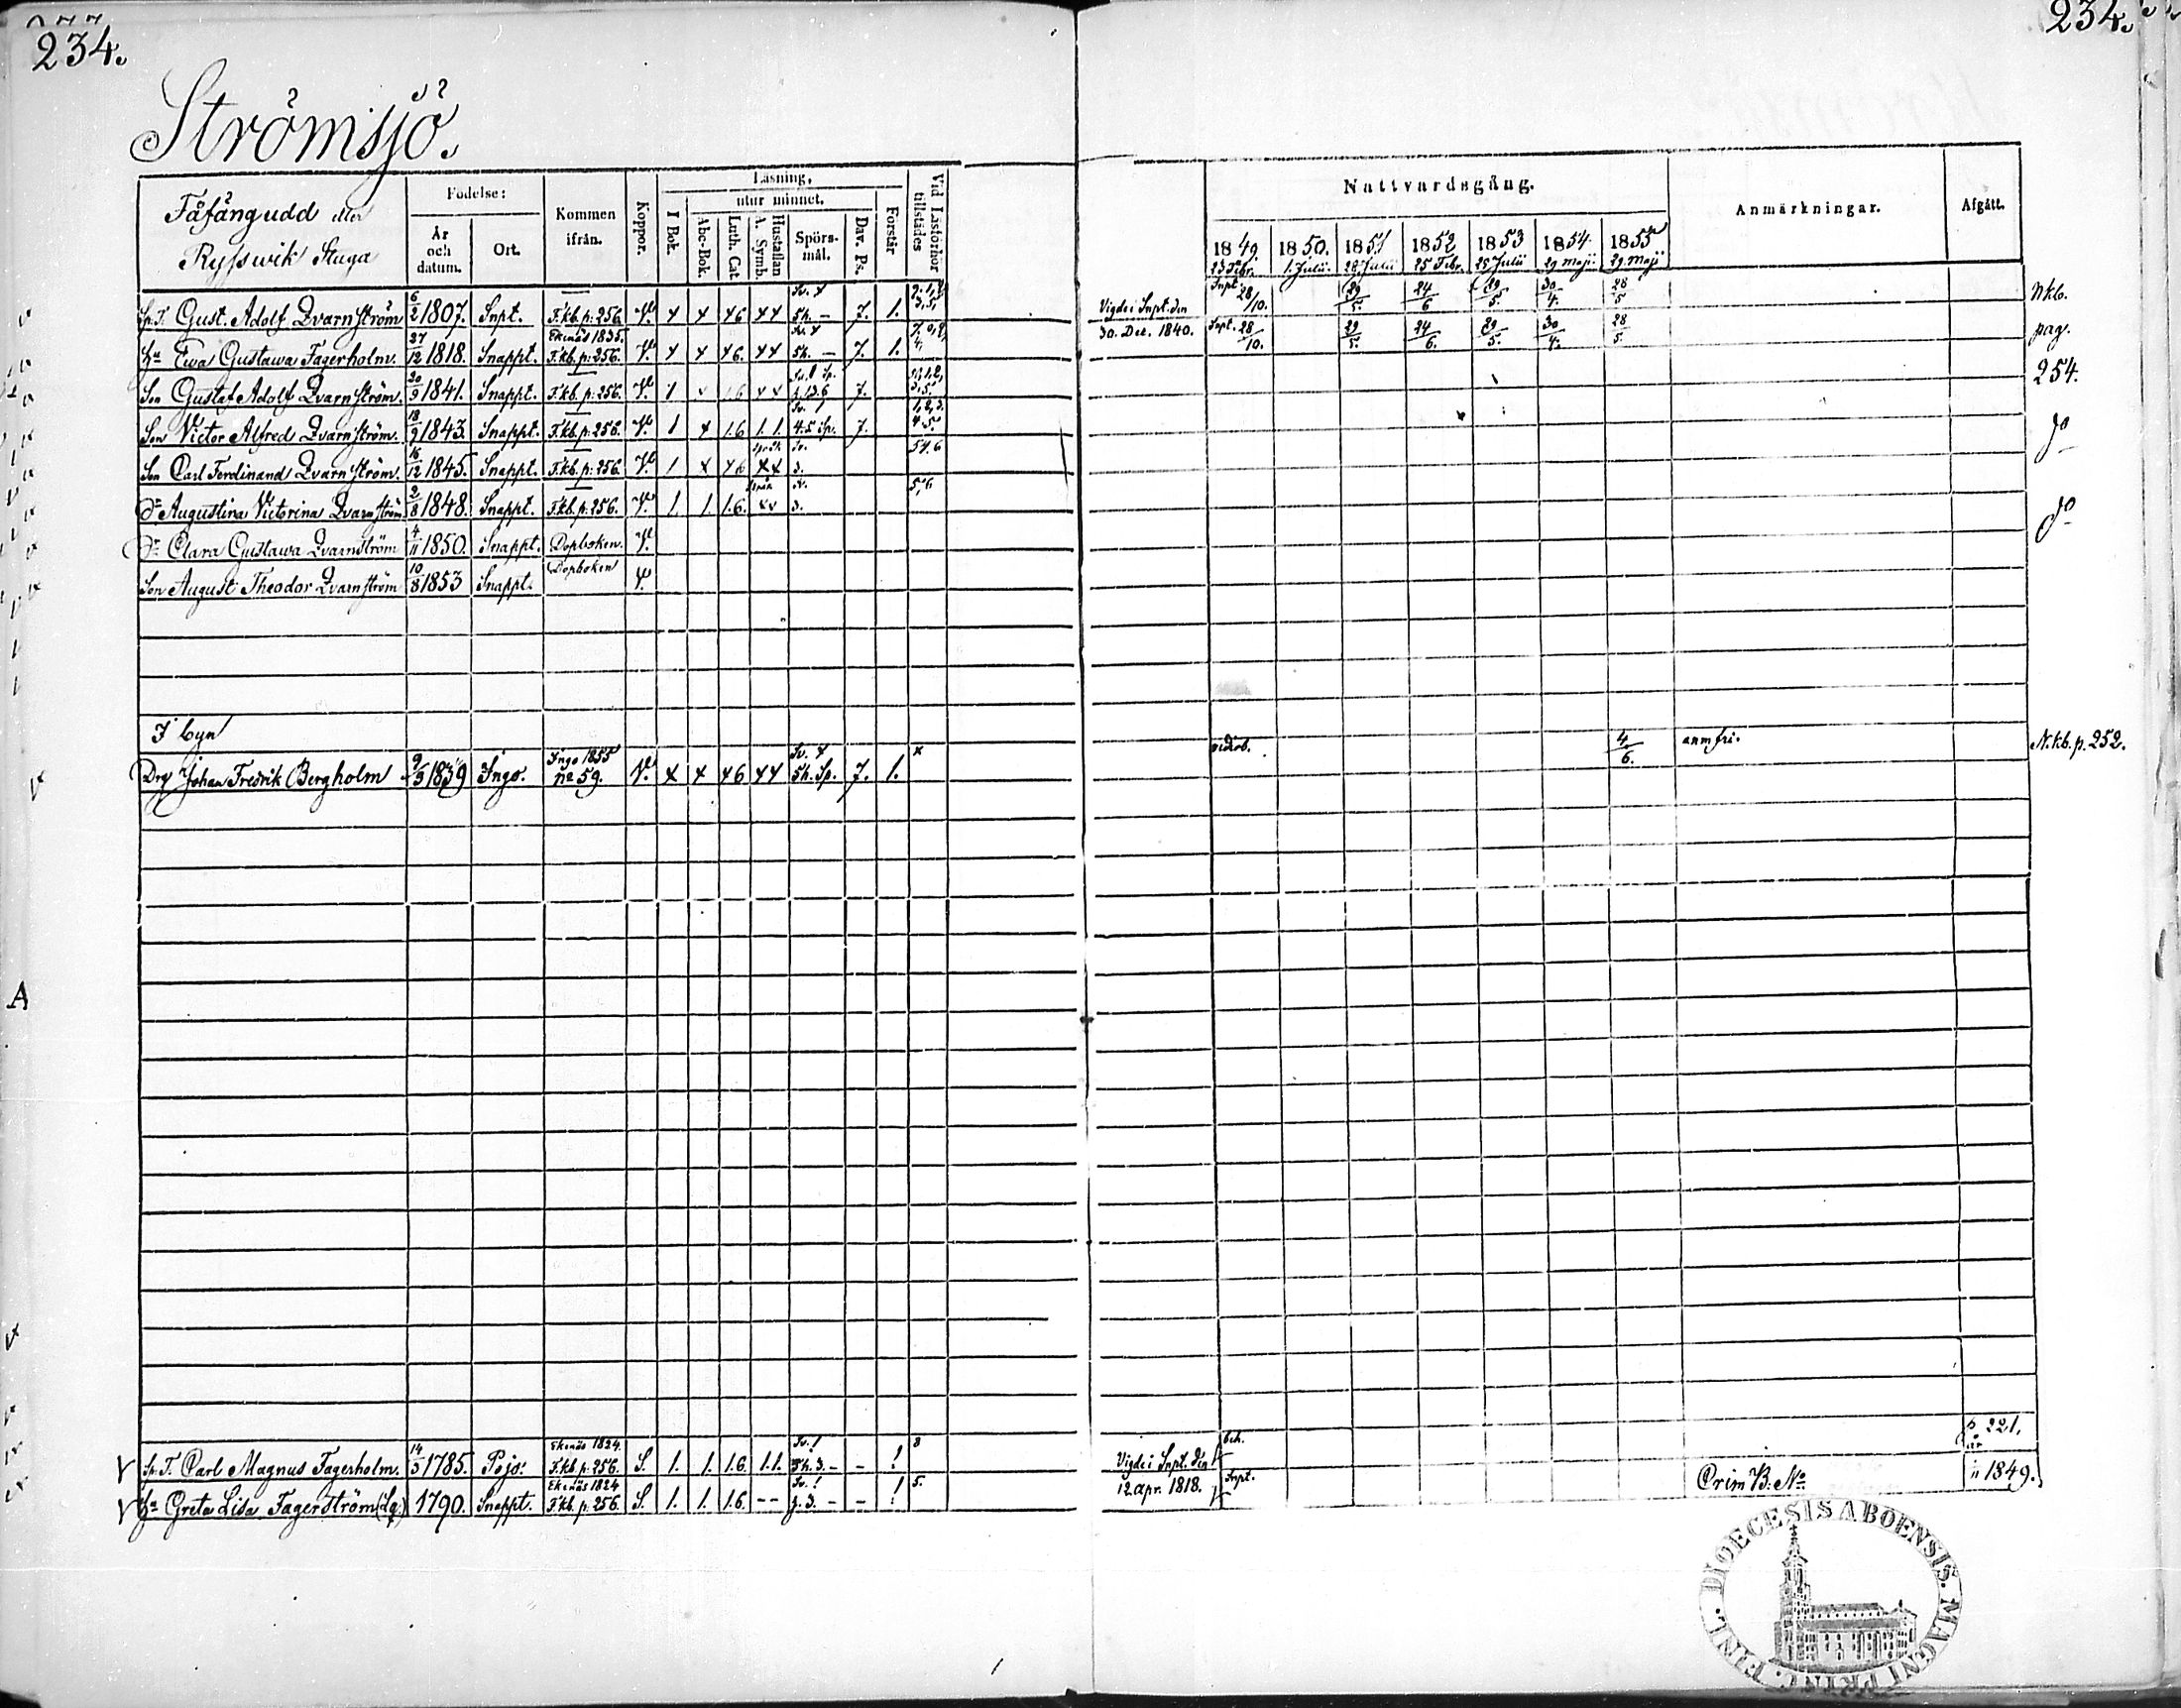 234.
234.
Strömsjö.
Fåfångudd eller
Ryssvik Stuga
Födelse:
År och datum.
Ort.
Kommen ifrån.
Koppor.
Läsning,
I Bok.
utur minnet.
Abc-Bok.
Luth. Cat.
Hustaflan A. Symb.
Spörs-mål.
Dav. Ps.
Förstår
Vid Läsförhör tillstädes
Nattvardsgång.
1849. 1850. 1851 1852 1853 1854. 1855
23 Febr. 1. Julii. 28 Julii 25 Febr. 25 Julii 29 Maji 29 Maji
Anmärkningar.
Afgått.
Sp.T. Gust. Adolf Qvarnström 6/2 1807. Snpt. F.kb. p: 256 V. 7. 1. Vigde i Snpt. den Snpt. 28/10. 29/5. 24/6 29/5. 30/4. 28/5 Nkb.
Hu Ewa Gustawa Fagerholm. 27/12 1818. Snappt. Ekenäs 1835. F.kb. p: 256. V. 7. 1. 30. Dec. 1840. Snpt. 28/10. 29/5. 24/6. 29/5. 30/4. 28/5. pag.
Son Gustaf Adolf Qvarnström. 20/9 1841. Snappt. F.kb. p: 256. V. 1 7. 254.
Son Victor Alfred Qvarnström. 18/9 1843. Snappt. F.kb. p: 256. V. 1 1.6 1.1. 4.5 Sp. 7. do
Son Carl Ferdinand Qvarnström. 16/12 1845. Snappt. F.kb. p: 256 V. 1 3.
Dr Augustina Victorina Qvarnström 2/8 1848. Snappt. F.kb. p: 256. V. 1. 1. 1.6. 3. do
Dr Clara Gustawa Qvarnström 4/11 1850. Snappt. Dopboken. V.
Son August Theodor Qvarnström 10/8 1853 Snappt. Dopboken V.
I byn
Drg Johan Fredrik Bergholm 9/3 1839 Ingo. Ingo 1855 No 59. V. 5h. Sp. 7. 1. 4/6. anm fri. N.kb. p. 252.
Sp.T. Carl Magnus Fagerholm. 14/3 1785. Pojo. Ekenäs 1824. F.kb. p: 256. S. 1. 1. 1.6. 1.1. 5h. 3. - - ! 8 Vigde i Snpt. den p. 221.
Hu Greta Lisa Fagerström 1790. Snappt. Ekenäs 1824 F.kb. p. 256 S. 1. 1. 1.6. - - 3. - - ! 5. 12 Apr. 1818. Snpt. Crim B. No 1849.
A
DIOECESIS ABOENSIS. MAGNI PRINC. FINL.